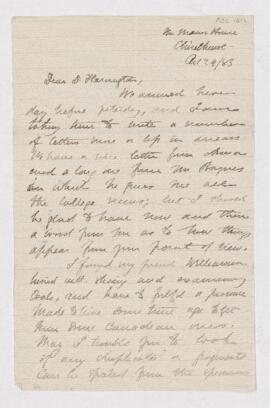 The Manor House
Chislehurst
Oct 24/83
Dear Dr Harrington,
We arrived here
day before yesterday, and I am
taking time to write a number
of letters more or less in arrears
We have a nice letter from
and a long one from Mr
in which he gives me all
the College news; but I should
be glad to have now and then
a word from you as to how things
appear from your point of view.
I found my friend Williamson
and examining
Coals, and have to fulfil a promise
made to him some time ago to get
him some Canadian ones.
May I trouble you to look
if any duplicates or fragments
can be spared from the specimens